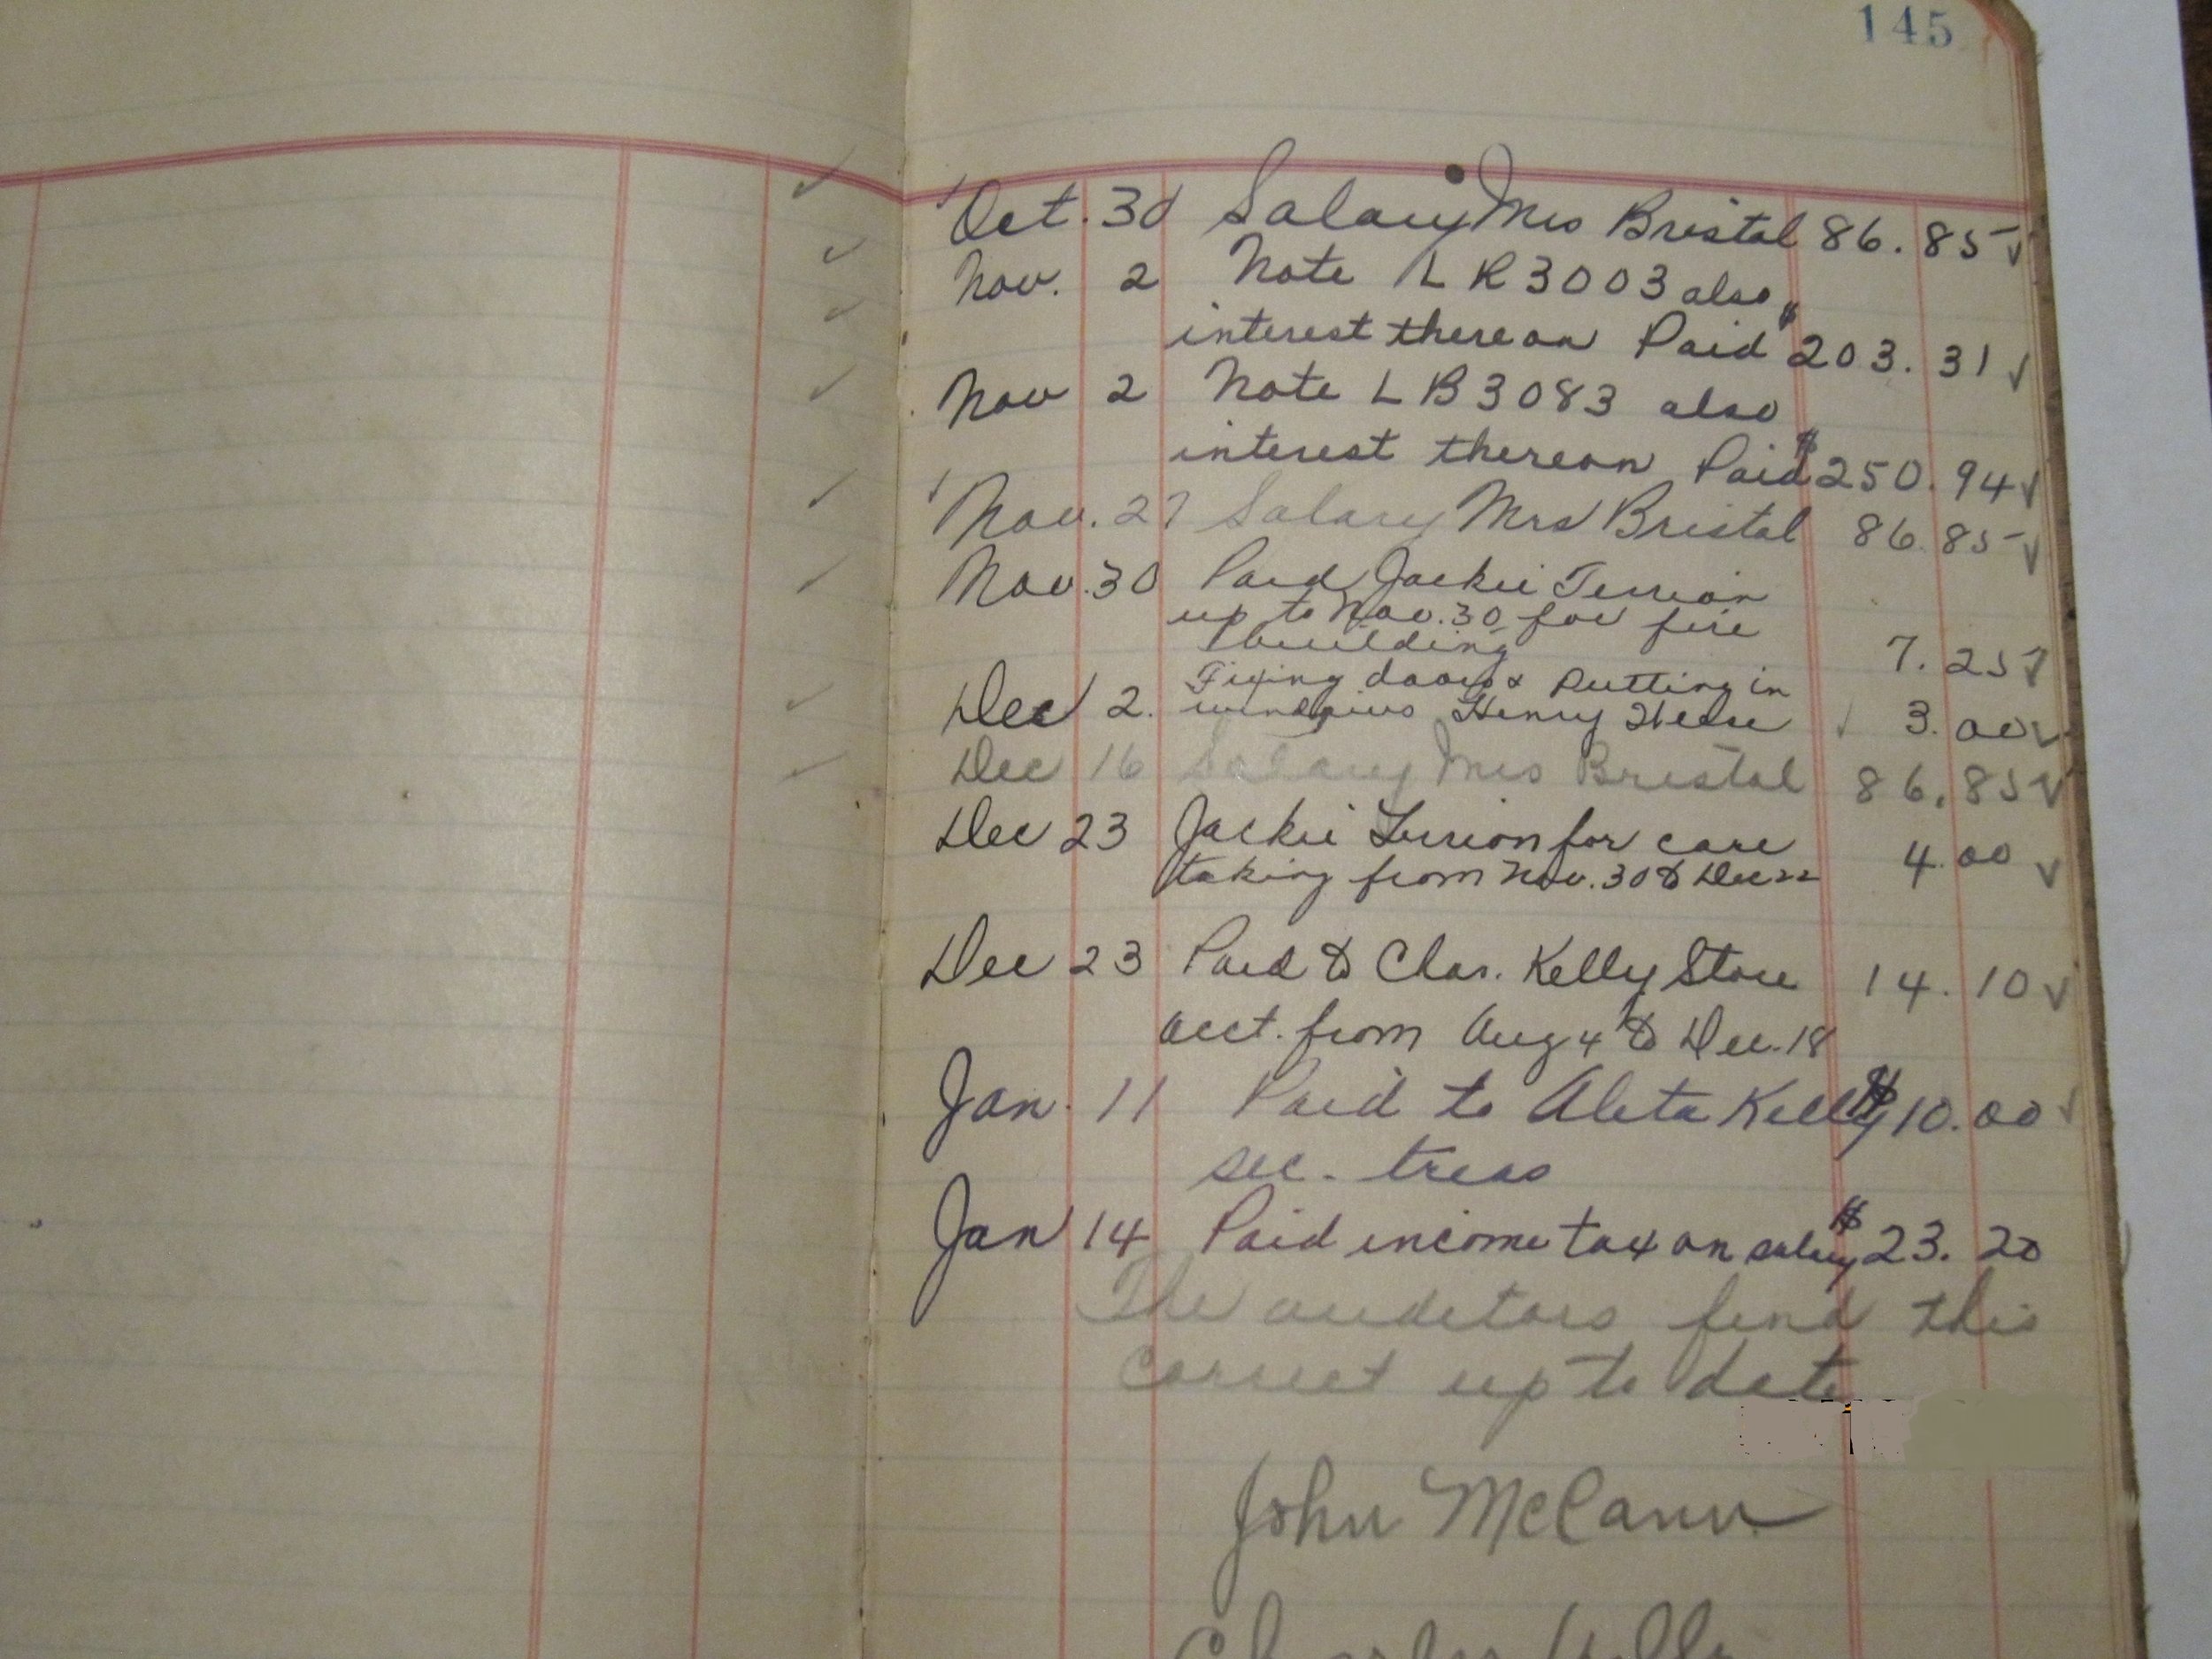 145
Oct. 30 Salary Mrs Bristol 86.85
Nov. 2 Note L R 3003 also
interest thereon Paid $203.31
Nov 2 Note L B 3083 also
interest thereon Paid $250.94
Nov. 27 Salary Mrs Bristol 86.85
Nov. 30 Paid Jackie Terrion
up to Nov. 30 for fire
building 7.25
Dec 2. Fixing doors & Putting in
windows Henry 3.00
Dec 16 Salary Mrs Bristol 86.85
Dec 23 Jackie Terrion for care
taking from Nov. 30 to Dec 22 4.00
Dec 23 Paid to Chas. Kelly Store 14.10
acct. from Aug 4 to Dec. 18
Jan. 11 Paid to Aleta Kelly $10.00
sec. treas
Jan 14 Paid income tax on salary $23.20
The auditors find this
correct up to date
John McCann